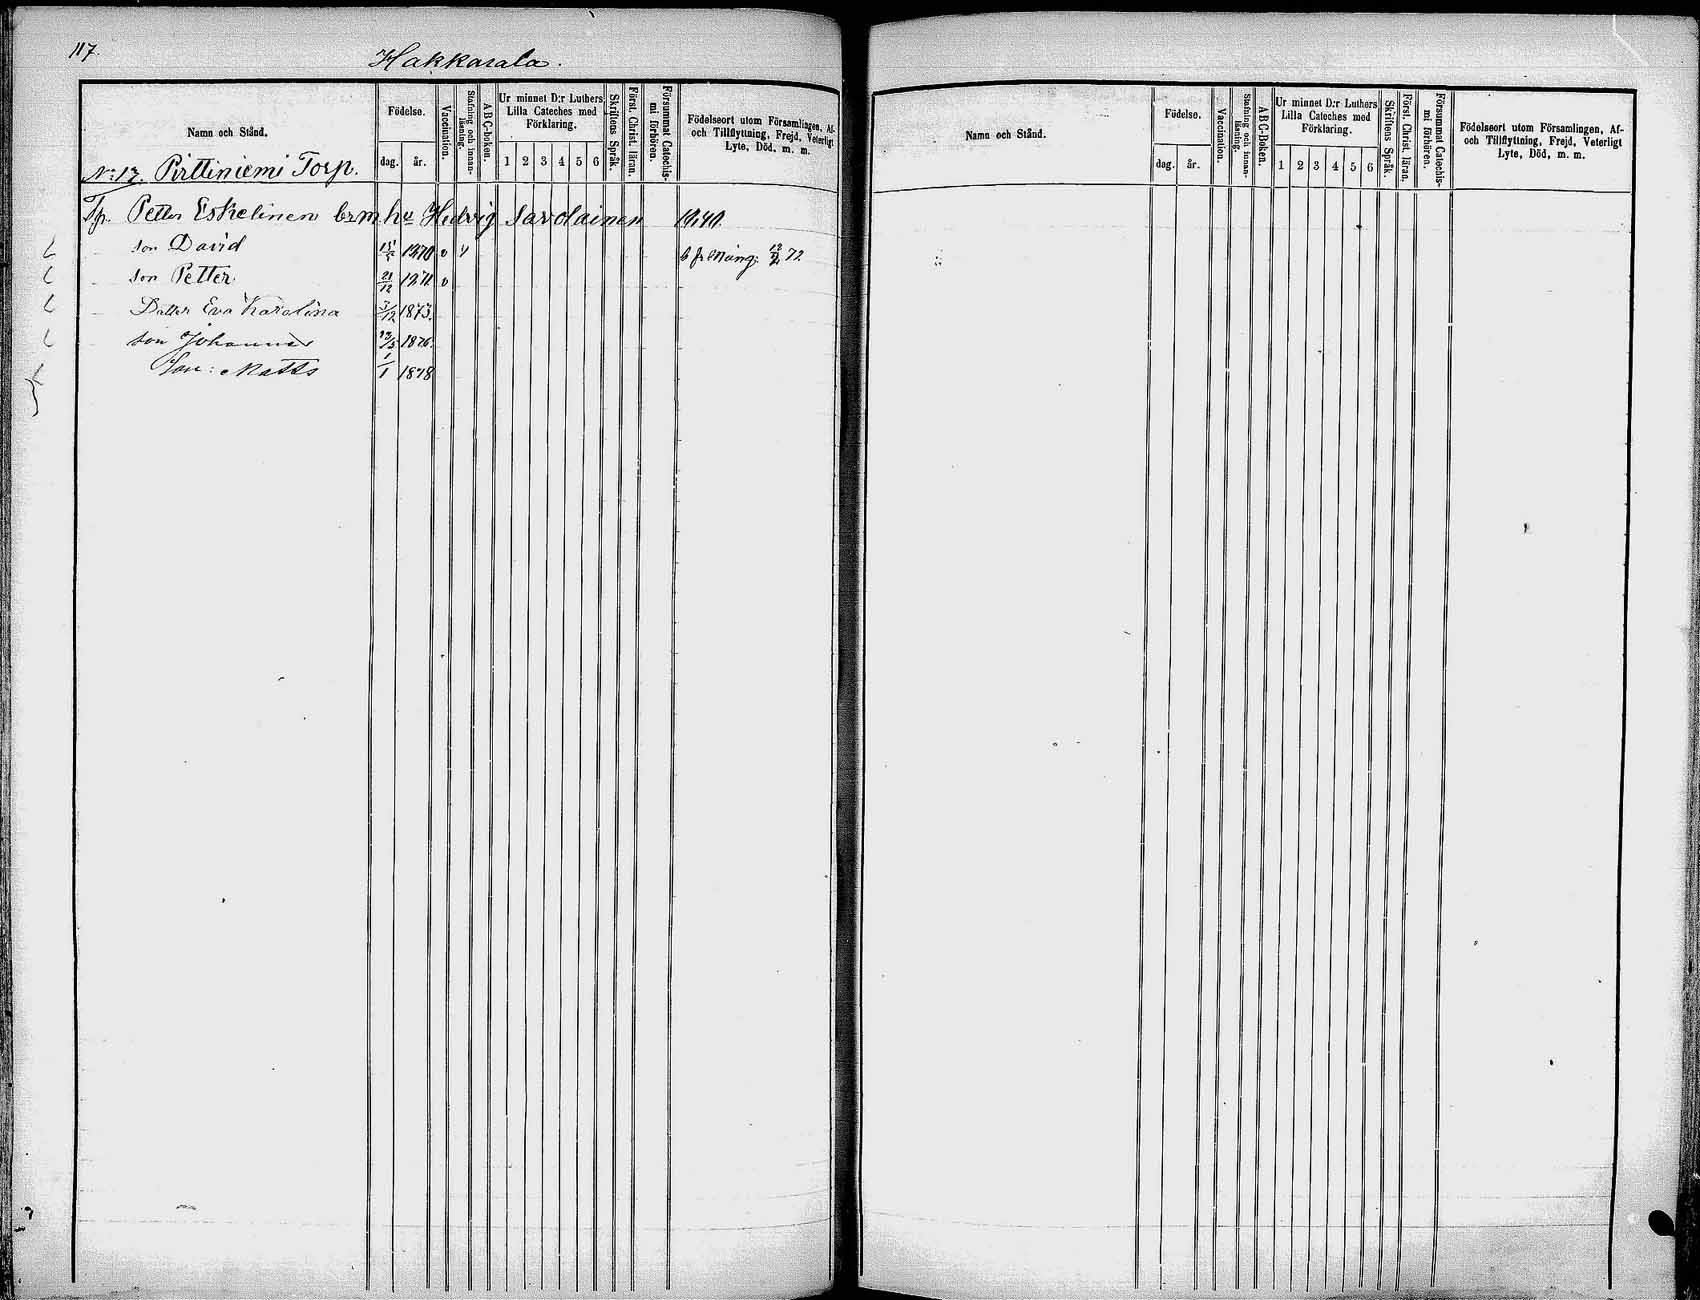 117.
Hakkarala.
Namn och Stånd.
Födelse.
dag.
år.
Vaccination.
Stafning och innan-
läsning.
ABC-boken.
Ur minnet D:r Luthers
Lilla Cateches med
Förklaring.
1 2 3 4 5 6
Skriftens Språk.
Först. Christ. läran.
Försummat Catechis-
mi förhören.
Födelseort utom Församlingen, Af-
och Tillflyttning, Frejd, Veterligt
Lyte, Död, m. m.
N:13. Pirttiniemi Torp.
Tp. Petter Eskelinen h Hedvig Savolainen
son David 1870 v
son Petter 21/12 1871 v
Dotter Eva Karolina 3/12 1873.
son Johannes 1876.
Son: Matts 1/1 1878
Namn och Stånd.
Födelse.
dag.
år.
Vaccination.
Stafning och innan-
läsning.
ABC-boken.
Ur minnet D:r Luthers
Lilla Cateches med
Förklaring.
1 2 3 4 5 6
Skriftens Språk.
Först. Christ. läran.
Försummat Catechis-
mi förhören.
Födelseort utom Församlingen, Af-
och Tillflyttning, Frejd, Veterligt
Lyte, Död, m. m.